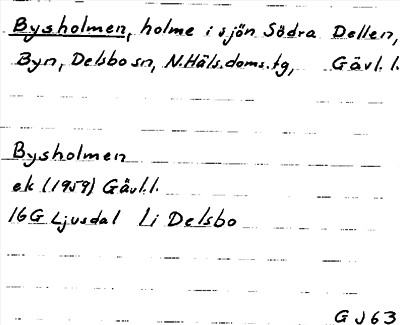 Bysholmen, holme i sjön Södra Dellen,
Byn, Delsbo sn, N.Häls.doms.tg, Gävl.l.
Bysholmen
ek (1959) Gävl.l.
16G Ljusdal li Delsbo
G J 63